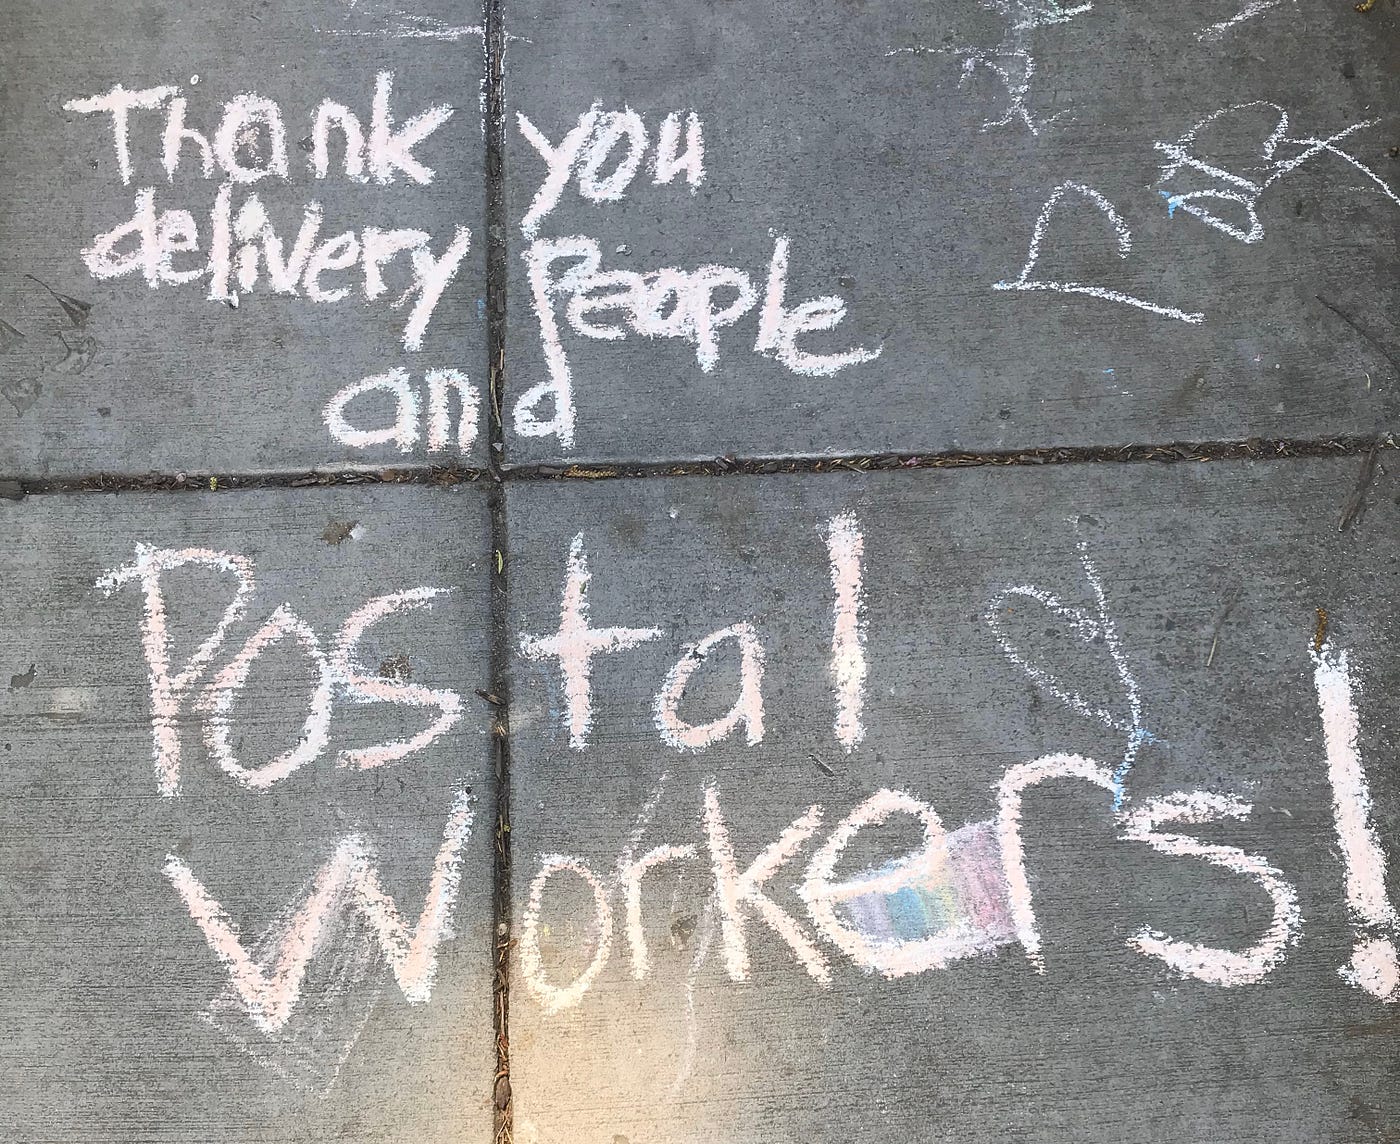 Thank you
delivery People
and
Postal
Workers!